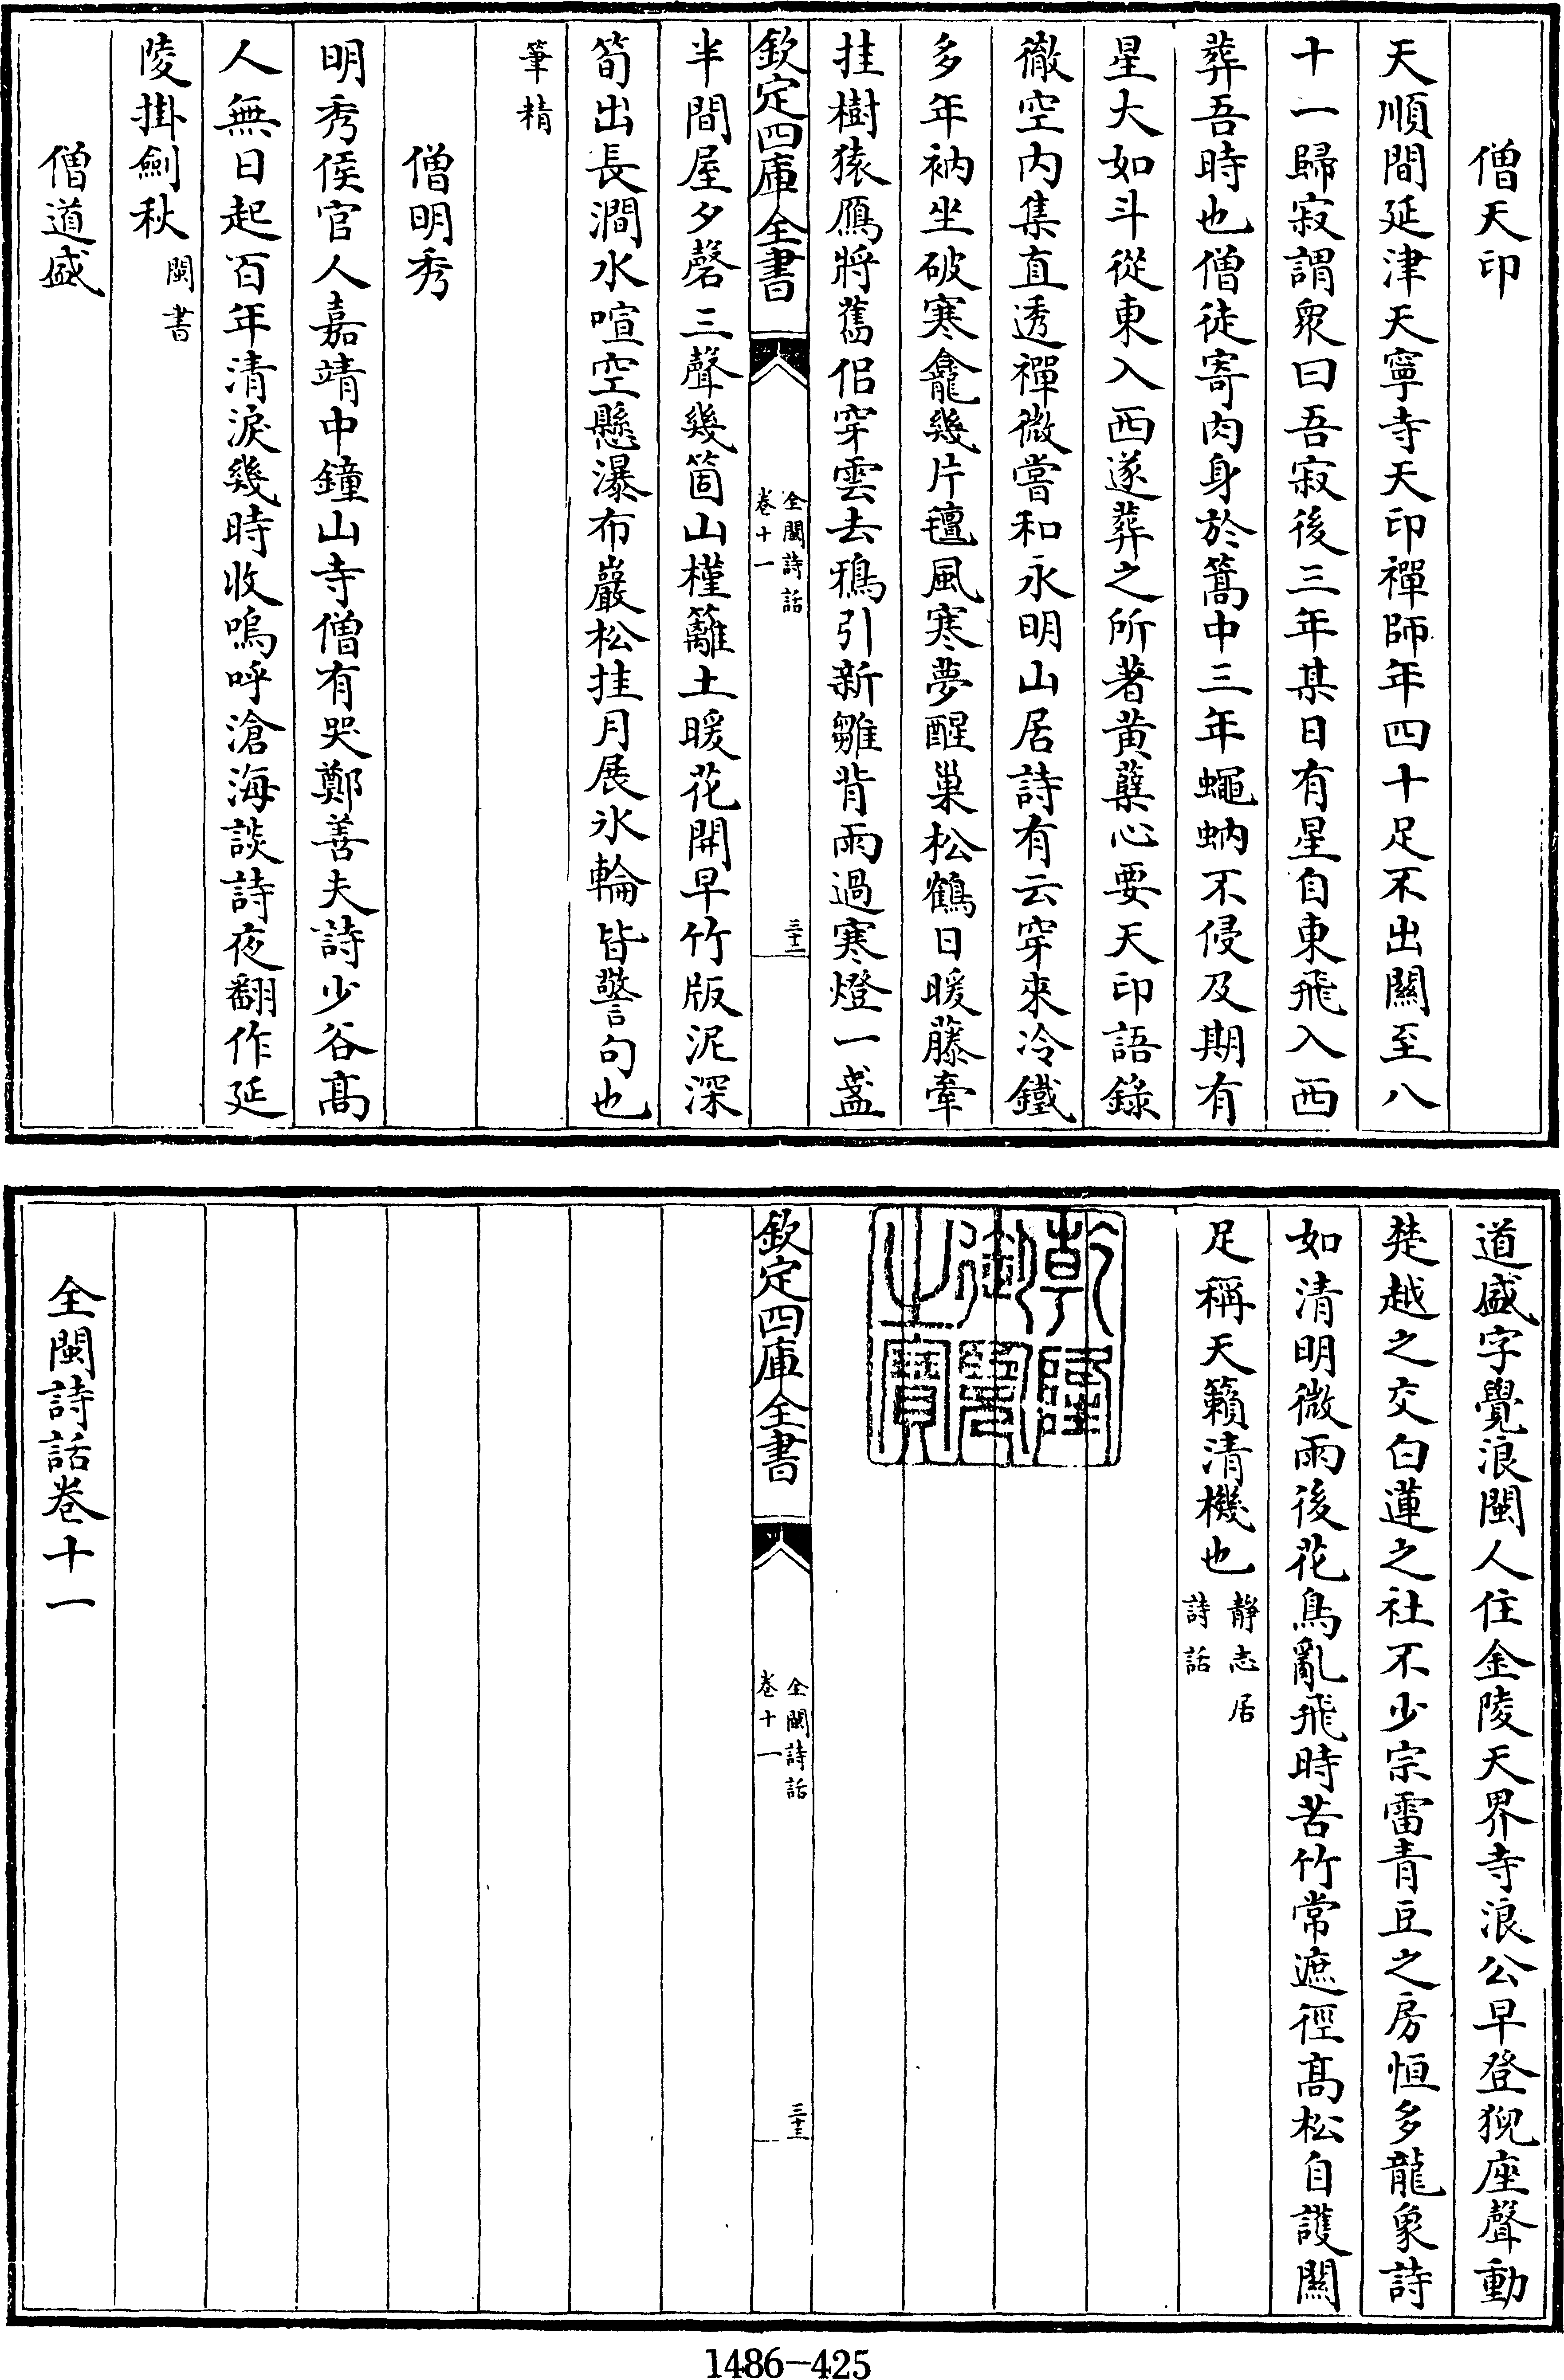 僧天印
天順間延津天寧寺天印禪師年四十足不出關至八
十一歸寂謂衆曰吾寂後三年某日有星自東飛入西
葬吾時也僧徒寄肉身於篙中三年蠅蚋不侵及期有
星大如斗從東入西遂葬之所著黄蘖心要天印語錄
徹空内集直透禪微嘗和永明山居詩有云穿來冷鐵
多年衲坐破寒龕幾片氊風寒夢醒巢松鶴日暖藤牽
挂樹猿鴈將舊侣穿雲去鴉引新雛背雨過寒燈一盞
欽定四庫全書
全閩詩話
卷十一
三十二
半間屋夕磬三聲幾箇山槿籬土暖花開早竹版泥深
筍出長澗水喧空懸瀑布巖松挂月展氷輪皆警句也
筆精
僧明秀
明秀侯官人嘉靖中鐘山寺僧有哭鄭善夫詩少谷髙
人無日起百年清淚幾時收嗚呼滄海談詩夜翻作延
陵掛劍秋
閩書
僧道盛
道盛字覺浪閩人住金陵天界寺浪公早登猊座聲動
楚越之交白蓮之社不少宗雷青豆之房恒多龍象詩
如清明微雨後花鳥亂飛時苦竹常遮徑髙松自護關
足稱天籟清機也
静志居
詩話
乾隆
御覽
之寶
欽定四庫全書
全閩詩話
卷十一
三十三
全閩詩話卷十一
1486-425